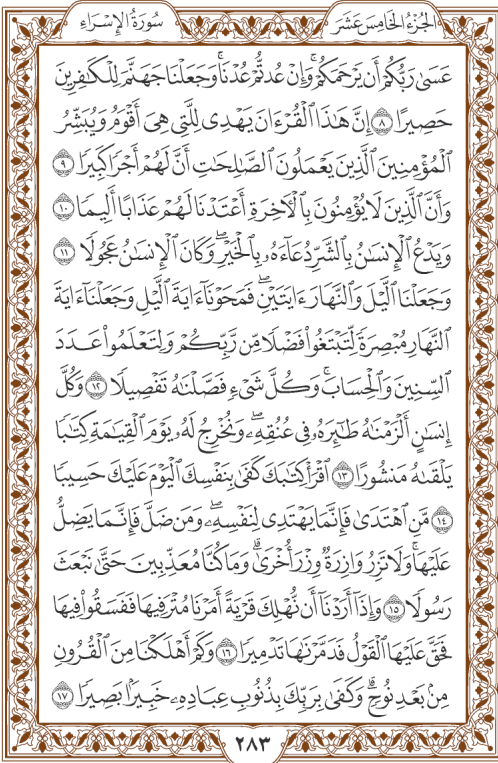 الجُزْءُ الخَامِسَ عَشَرَ
سُورَةُ الإِسْرَاءِ
عَسَىٰ رَبُّكُمْ أَن يَرْحَمَكُمْ ۚ وَإِنْ عُدتُّمْ عُدْنَا ۘ وَجَعَلْنَا جَهَنَّمَ لِلْكَٰفِرِينَ
حَصِيرًا ٨ إِنَّ هَٰذَا ٱلْقُرْءَانَ يَهْدِى لِلَّتِى هِىَ أَقْوَمُ وَيُبَشِّرُ
ٱلْمُؤْمِنِينَ ٱلَّذِينَ يَعْمَلُونَ ٱلصَّٰلِحَٰتِ أَنَّ لَهُمْ أَجْرًا كَبِيرًا ٩
وَأَنَّ ٱلَّذِينَ لَا يُؤْمِنُونَ بِٱلْءَاخِرَةِ أَعْتَدْنَا لَهُمْ عَذَابًا أَلِيمًا ١٠
وَيَدْعُ ٱلْإِنسَٰنُ بِٱلشَّرِّ دُعَآءَهُۥ بِٱلْخَيْرِ ۖ وَكَانَ ٱلْإِنسَٰنُ عَجُولًا ١١
وَجَعَلْنَا ٱلَّيْلَ وَٱلنَّهَارَ ءَايَتَيْنِ ۖ فَمَحَوْنَآ ءَايَةَ ٱلَّيْلِ وَجَعَلْنَآ ءَايَةَ
ٱلنَّهَارِ مُبْصِرَةً لِّتَبْتَغُوا۟ فَضْلًا مِّن رَّبِّكُمْ وَلِتَعْلَمُوا۟ عَدَدَ
ٱلسِّنِينَ وَٱلْحِسَابَ ۚ وَكُلَّ شَىْءٍ فَصَّلْنَٰهُ تَفْصِيلًا ١٢ وَكُلَّ
إِنسَٰنٍ أَلْزَمْنَٰهُ طَٰٓئِرَهُۥ فِى عُنُقِهِۦ ۖ وَنُخْرِجُ لَهُۥ يَوْمَ ٱلْقِيَٰمَةِ كِتَٰبًا
يَلْقَىٰهُ مَنشُورًا ١٣ ٱقْرَأْ كِتَٰبَكَ كَفَىٰ بِنَفْسِكَ ٱلْيَوْمَ عَلَيْكَ حَسِيبًا
١٤ مَّنِ ٱهْتَدَىٰ فَإِنَّمَا يَهْتَدِى لِنَفْسِهِۦ ۖ وَمَن ضَلَّ فَإِنَّمَا يَضِلُّ
عَلَيْهَا ۚ وَلَا تَزِرُ وَازِرَةٌ وِزْرَ أُخْرَىٰ ۗ وَمَا كُنَّا مُعَذِّبِينَ حَتَّىٰ نَبْعَثَ
رَسُولًا ١٥ وَإِذَآ أَرَدْنَآ أَن نُّهْلِكَ قَرْيَةً أَمَرْنَا مُتْرَفِيهَا فَفَسَقُوا۟ فِيهَا
فَحَقَّ عَلَيْهَا ٱلْقَوْلُ فَدَمَّرْنَٰهَا تَدْمِيرًا ١٦ وَكَمْ أَهْلَكْنَا مِنَ ٱلْقُرُونِ
مِنۢ بَعْدِ نُوحٍ ۗ وَكَفَىٰ بِرَبِّكَ بِذُنُوبِ عِبَادِهِۦ خَبِيرًۢا بَصِيرًا ١٧
٢٨٣